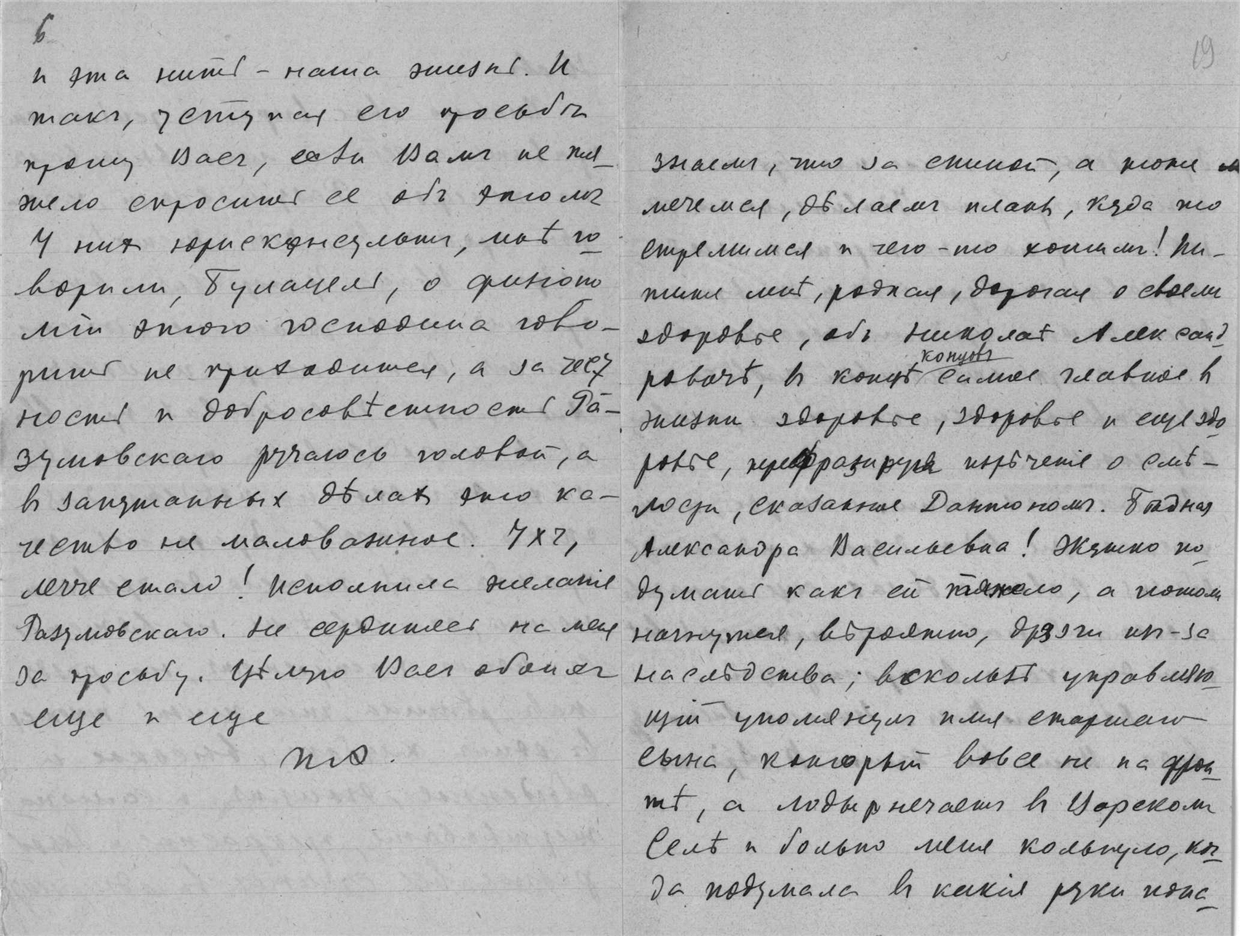 6
и эта нить – наша жизнь. И
такъ, уступая его просьбѣ
прошу Васъ, если Вамъ не тя-
жело спросить ее объ этомъ
У них юрисконсультъ, мнѣ го-
ворили, Булацель, о физіоно
міи этого господина гово-
рить не приходится, а за чест
ность и добросовѣстность Ра-
зумовскаго ручаюсь головой, а
въ запутанных дѣлах это ка-
чество не маловажное. Ухъ,
легче стало! Исполнила желаніе
Разумовскаго. Не сердитесь на меня
за просьбу. Цѣлую Васъ обоихъ
еще и еще
19
знаемъ, что за спиной, а тоже
мечемся, дѣлаемъ планы, куда то
стремимся и чего-то хотимъ! Пи-
шите мнѣ, родная, дорогая о своем
здоровье, объ Николаѣ Александ-
ровичѣ, въ концѣ
концовъ
самое главное въ
жизни здоровье, здоровье и еще здо
ровье, перефразируя изрѣченіе о смѣ-
лости, сказанное Дантономъ. Бѣдная
Александра Васильевна! Жутко по
думать какъ ей тяжело, а потом
начнутся, вѣроятно, дрязги из-за
наслѣдства; вскользь управляю-
щій упомянулъ имя старшаго
сына, который вовсе не на фрон
тѣ, а лодырничаетъ въ Царском
Селѣ и больно меня кольнуло, ког-
да подумала въ какія руки попа-